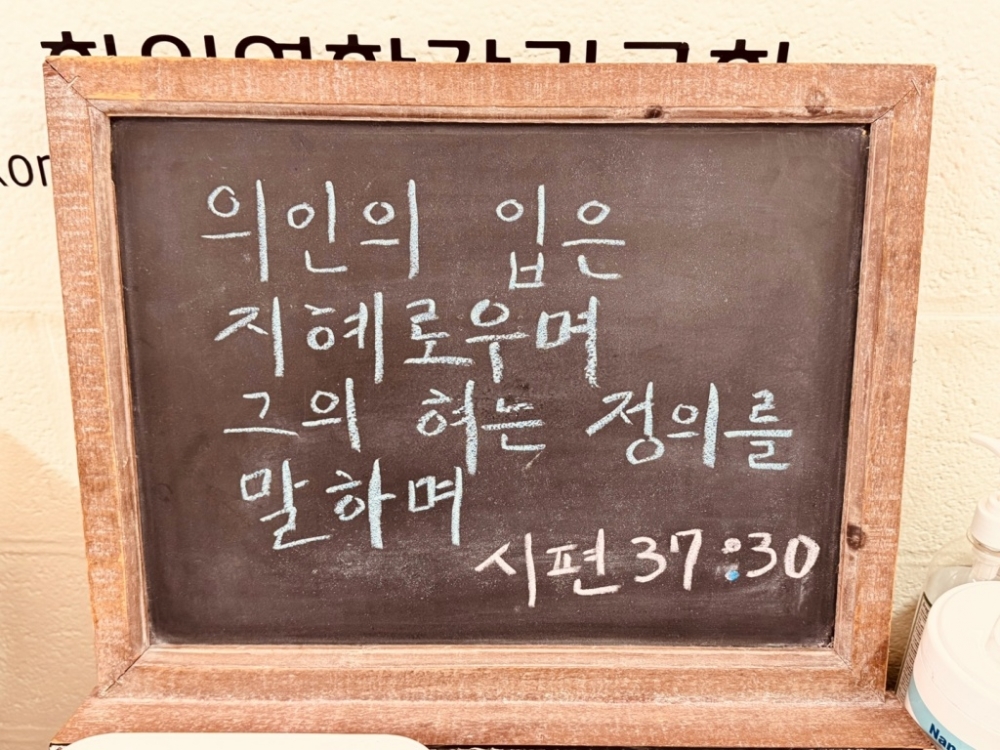 의인의 입은
지혜로우며
그의 혀는 정의를
말하며
시편 37:30